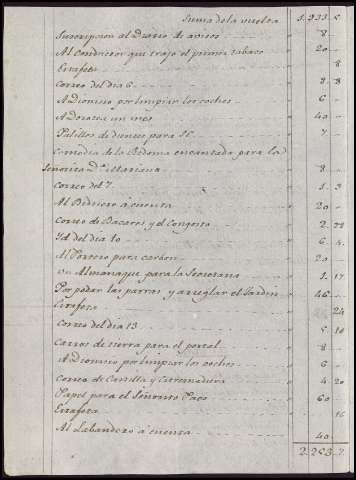 Suma de la vuelta 1.933. 5
Suscripcion al Diario de avisos 8
Al Conductor que trajo el primer tabaco 20
Estafeta 8
Correo del dia 6 8 8
A Dionisio por limpiar los coches 6
A Dorotea un mes 40
Palillos de dientes para S.E. 7
Comedia de la Redoma encantada para la
Señorita D.ª Mariana 8
Correo del 7. 1. 3
Al Vidriero á cuenta 20
Correo de Bacares y el Congosto 2. 22
Yd. del dia 10 6 4.
Al Portero para carbon 20
Un Almanaque para la Secretaria 1. 17
Por podar las parras y arreglar el Jardin 46
Estafeta 24
Correo del dia 13 5 10
Carros de tierra para el portal 8
A Dionisio por limpiar los coches 6
Correo de Castilla y Extremadura 4 20
Papel para el Señorito Paco 60
Estafeta 16
Al Labandero á cuenta 40
2.253. 7